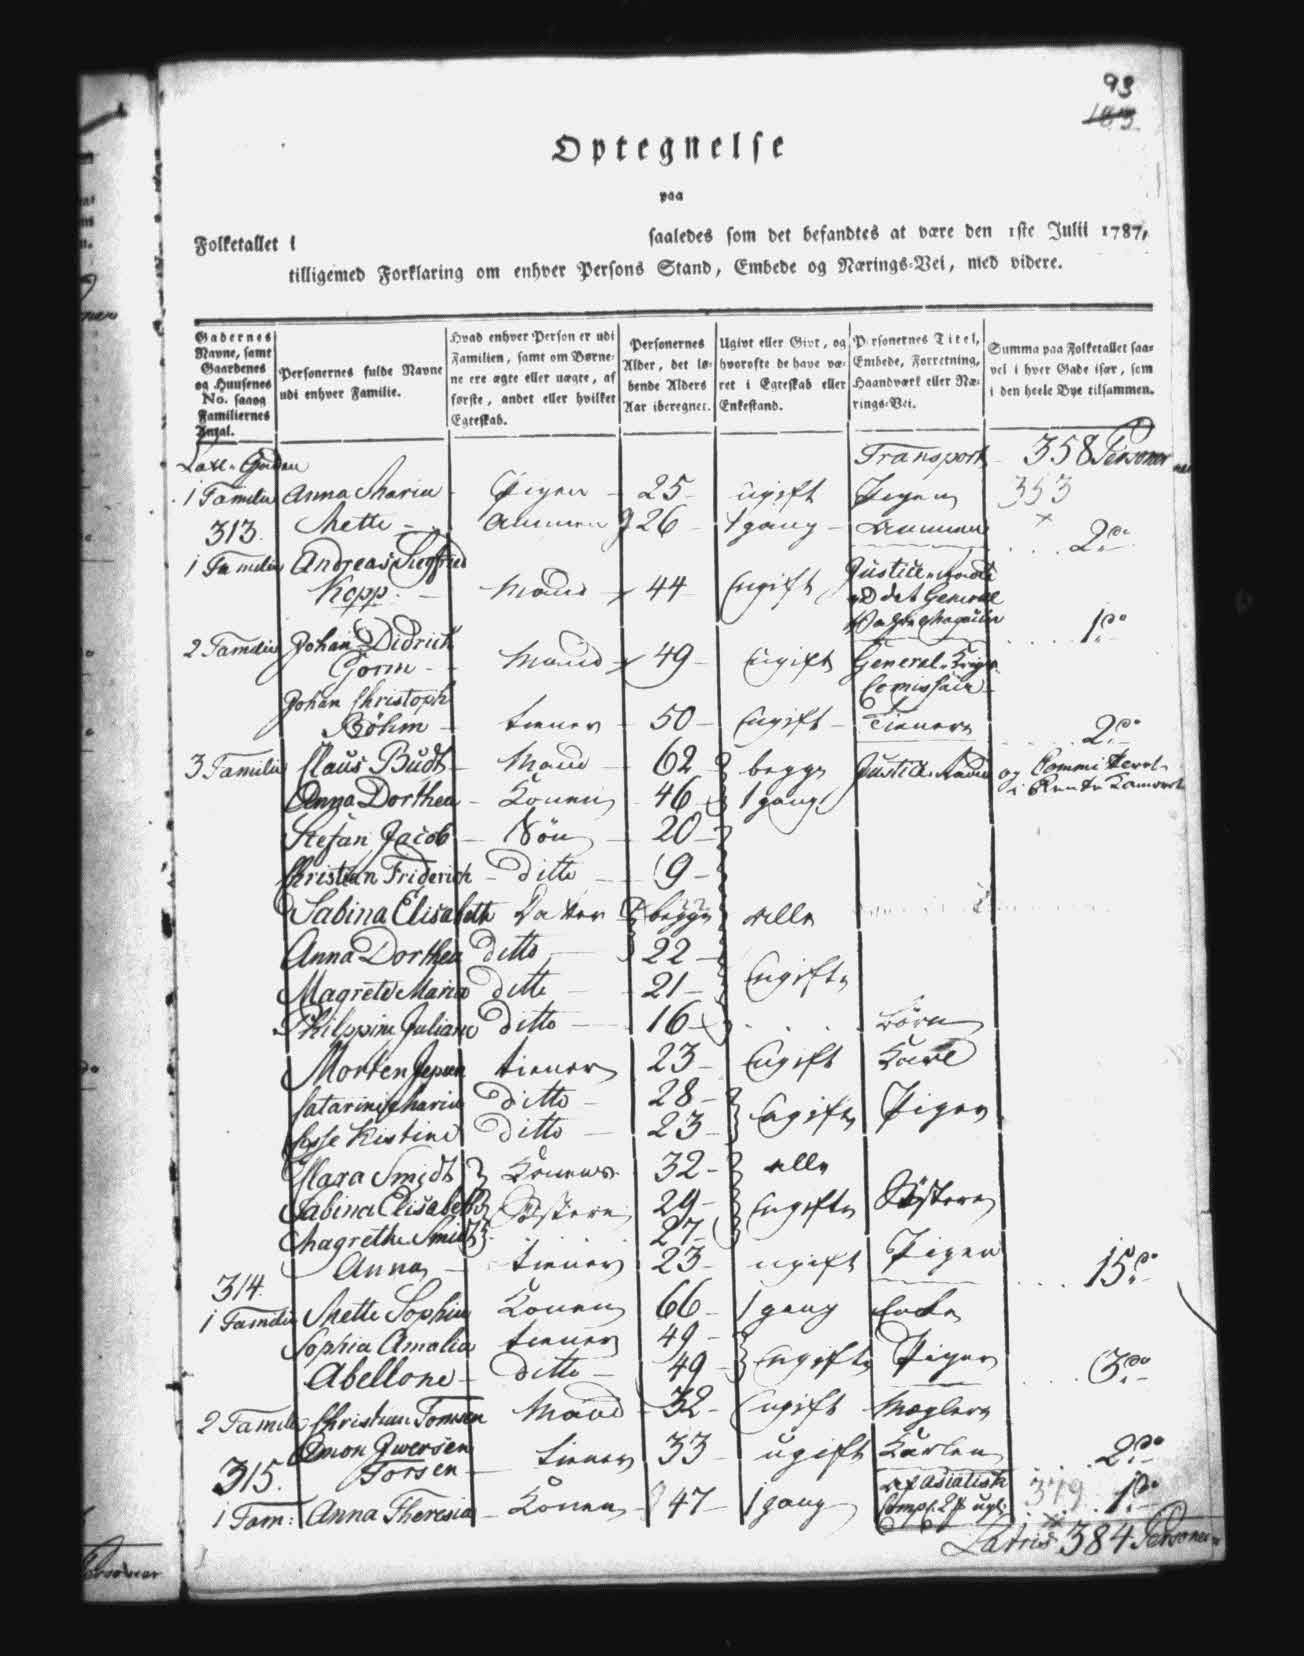 93
183.
Optegnelse
paa
Folketallet i saaledes som det befandtes at være den 1ste Julii 1787,
tilligemed Forklaring om enhver Persons Stand, Embede og Nærings-Vei, med videre.
Gadernes Navne, samt Gaardenes og Huusenes No. saavog Familiernes Antal.
Personernes fulde Navne udi enhver Familie.
Hvad enhver Person er udi Familien, samt om Børnene ere ægte eller uægte, af første, andet eller hvilket Egteskab.
Personernes Alder, det løbende Alders Aar iberegnet.
Ugivt eller Givt, og hvorofte de have været i Egteskab eller Enkestand.
Personernes Titel, Embede, Forretning, Haandværk eller Nærings-Vei.
Summa paa Folketallet saavel i hver Gade især, som i den heele Bye tilsammen.
Transport 358 Personer
1 Familie Anna Maria Pigen 25 ugift Pigen 353
313. Mette Ammen 26 1 gang Ammen 2 do
1 Familie Andreas Siegfried
Kopp Mand 44 Ugift Justice Raad
ved det General
1 do
2 Familie Johan Didrich
Gorm Mand 49 Ugift General Krigs
Comissair
Johan Christoph
Böhm tiener 50 Ugift Tiener 2 do
3 Familie Claus Budt Mand 62 begge Justice Raad og Committeret
Anna Dorthea Konen 46 1 gang i Rente Kameret
Stefan Jacob Søn 20
Christian Friderich ditto 9
Sabina Elisabeth Datter 22 begge alle
Anna Dorthea ditto 22
Magrete Maria ditto 21 Ugifte
Philppine Juliane ditto 16 Børn
Morten Jepsen tiener 23 Ugift Karl
Catarine Marie ditto 28 Ugifte Piger
Kistine ditto 23
Clara Smidt Konens 32 alle
Sabina Elisabeth Søstere 29 Ugifte Søstere
Magrethe Smidt 27
Anna tiener 23 ugift Pigen 15 do
314.
1 Familie Mette Sophie Konen 66 1 gang Enke
Sophia Amalia tiener 49
Abellone ditto 49 Ugifte Piger 3 do
2 Familie Christian Tomsen Mand 32 Ugift Mægler
Simon Iwersen
315. Torsen tiener 33 ugift Karlen 2 do
1 Fam: Anna Theresia Konen 47 1 gang af Asiatisk 379 1 do
Latus 384 Personer